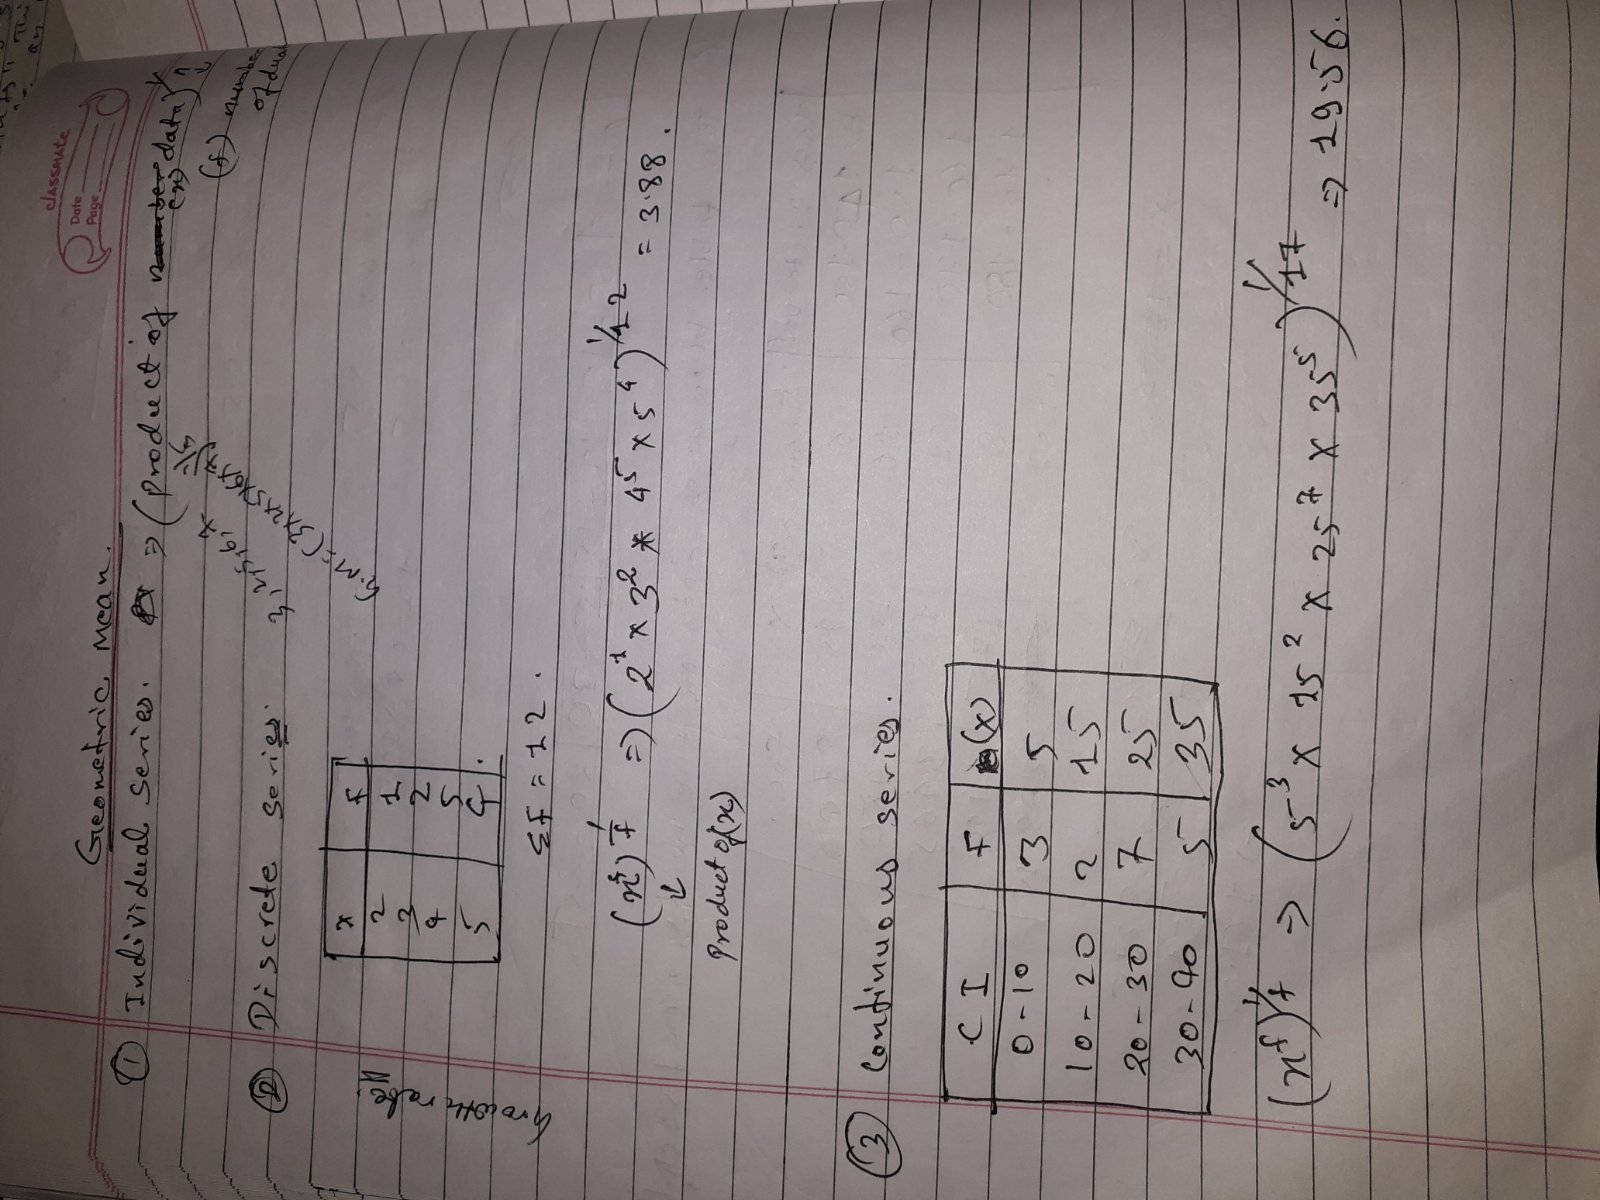 classmate
Date
Page
Geometric Mean.
① Individual series. ⇒ (product of data)^1/n
(x)
(f) number of data
3, 2, 5, 6, 7
G.M = (3×2×5×6×7)^1/5
② Discrete series.
x f
2 1
3 2
4 5
5 4
Growth rate
Σf = 12.
(x^f)^1/f ⇒ (2^1 × 3^2 * 4^5 × 5^4)^1/12 = 3.88.
↓
Product of (x)
③ Continuous series.
C I F (x)
0 - 10 3 5
10 - 20 2 15
20 - 30 7 25
30 - 40 5 35
(x^f)^1/f ⇒ (5^3 × 15^2 × 25^7 × 35^5)^1/17 ⇒ 19.56.